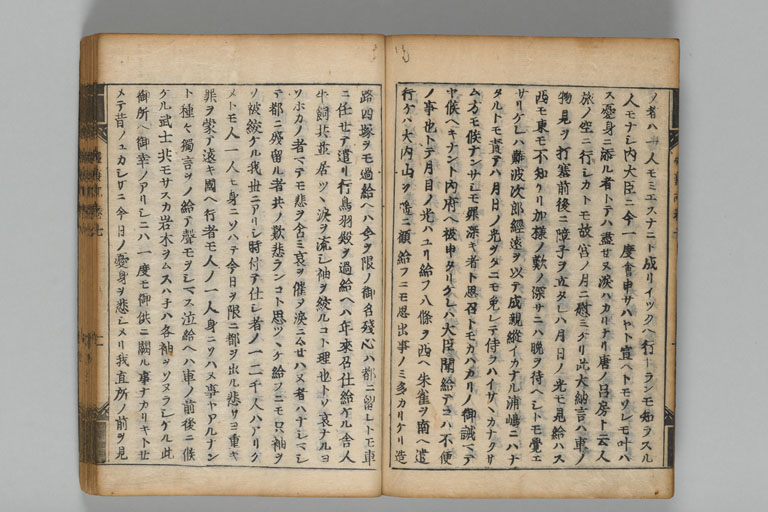 ノ者ハ一人モミエスナニト成リイツクヘ行ランモ知ラスル
人モナシ内大臣ニ今一度書申サハヤト宣ヘトモソレモ叶ハ
ス憂身ニ添ル者トテハ盡セヌ涙ハカリナリ唐ノ呂房ト云人
旅ノ空ニ行シカトモ故宮ノ月ニ慰ミケリ此大納言ハ車ノ
物見ヲ打塞前後ニ障子ヲ立タレハ月日ノ光モ見給ハス
西モ東モ不知ケリ加様ノ歎ノ深サニハ晩ヲ待ヘシトモ覺エ
サリケレハ難波次郎經遠ヲ以テ成親縦イカナル浦嶋ニハナ
タルトモ責テハ月日ノ光ヲタニモ免レテ侍ラハイサヽカナクサ
ム方モ候ナンサシモ罪深キ者ト思召トモカハカリノ御誡マテ
ヤ候ヘキナント内府ヘ被申タリケレハ大臣聞給テコハ不便
ノ事也トテ月日ノ光ハユリ給フ八條ヲ西ヘ朱雀ヲ南ヘ遣
行ケハ大内山ヲ隔ニ顧給フニモ思出事ノミ多カリケリ造
路四塚ヲモ過給ヘハ今ヲ限ノ御名残心ハ都ニ留レトモ車
ニ任セテ遣リ行鳥羽殿ヲ過給ヘハ年來召仕給ケル舎人
牛飼共並居ツヽ涙ヲ流シ袖ヲ絞ルコト理也トソ哀ナルヨ
ソホカノ者マテモ悲ヲ含ミ哀ヲ催ヲ涙ニムセハヌ者ハナシマシ
テ都ニ残留ル者共ノ歎悲ランコト思ツヽケ給フニモ只袖ヲ
ソ被絞ケル我世ニアリシ時付テ仕シ者ノ一二千人ハアリケ
メトモ人一人モ身ニソハテ今日ヲ限ニ都ヲ出ル悲サヨ重キ
罪ヲ蒙テ遠キ國ヘ行者モ人ノ一人身ニソハヌ事ヤアルナン
ト種々獨言ヲノ給テ聲モヲシマス泣給ヘハ車ノ前後ニ候
ケル武士共モサスカ岩木ヲムスハ子ハ各袖ヲソヌラシケル此
御所ヘ御幸ノアリシニハ一度モ御供ニ闕ル事ナカリキトサ
メテ昔ノユカシサニ今日ノ憂身ヲ悲シメリ我直所ノ前ヲ見